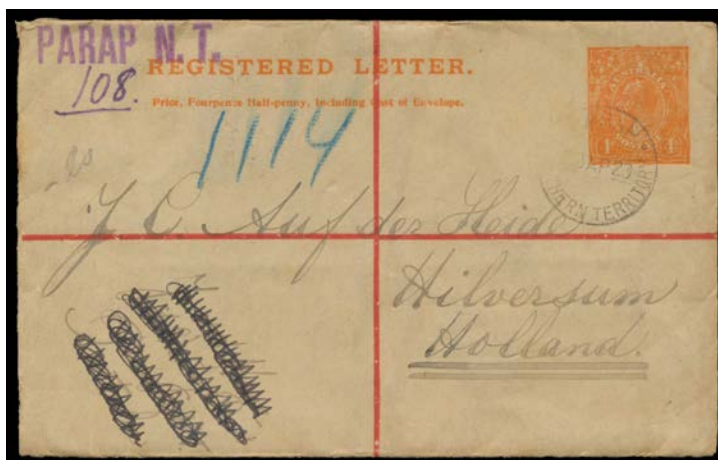 PARAP N.T.
108.
REGISTERED LETTER.
Price, Fourpence Half-penny, Including Cost of Envelope.
1114
AUSTRALIA
J C Auf der Heide
Hilversum
Holland.